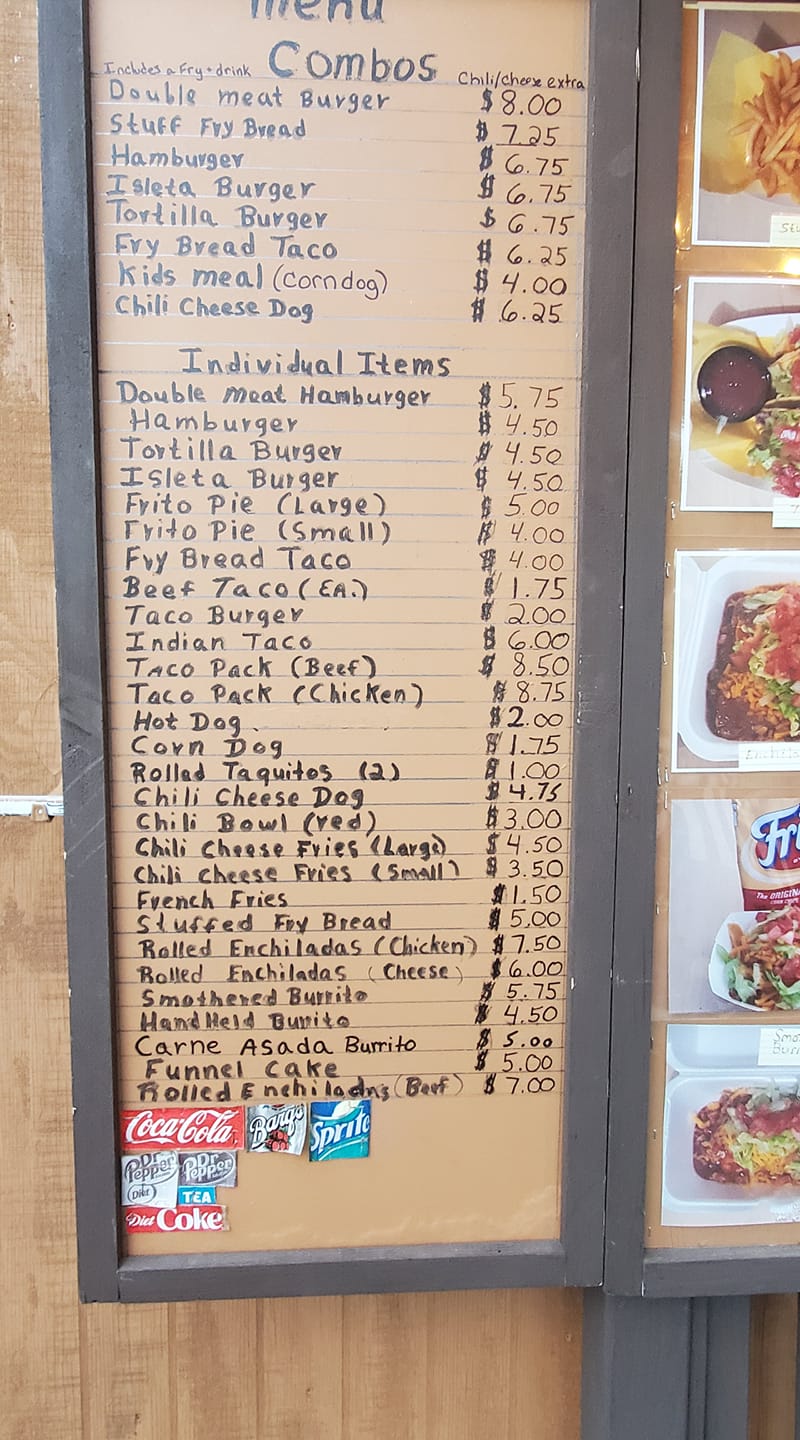 Menu
Includes a Fry + drink Combos Chili/cheese extra
Double meat Burger $ 8.00
Stuff Fry Bread $ 7.25
Hamburger $ 6.75
Isleta Burger $ 6.75
Tortilla Burger $ 6.75
Fry Bread Taco $ 6.25
Kids meal (corndog) $ 4.00
Chili Cheese Dog $ 6.25
Individual Items
Double meat Hamburger $ 5.75
Hamburger $ 4.50
Tortilla Burger $ 4.50
Isleta Burger $ 4.50
Frito Pie (Large) $ 5.00
Frito Pie (Small) $ 4.00
Fry Bread Taco $ 4.00
Beef Taco (EA.) $ 1.75
Taco Burger $ 2.00
Indian Taco $ 6.00
Taco Pack (Beef) $ 8.50
Taco Pack (Chicken) $ 8.75
Hot Dog $ 2.00
Corn Dog $ 1.75
Rolled Taquitos (2) $ 1.00
Chili Cheese Dog $ 4.75
Chili Bowl (red) $ 3.00
Chili Cheese Fries (Large) $ 4.50
Chili Cheese Fries (Small) $ 3.50
French Fries $ 1.50
Stuffed Fry Bread $ 5.00
Rolled Enchiladas (Chicken) $ 7.50
Rolled Enchiladas (Cheese) $ 6.00
Smothered Burrito $ 5.75
Hand Held Burrito $ 4.50
Carne Asada Burrito $ 5.00
Funnel Cake $ 5.00
Rolled Enchiladas (Beef) $ 7.00
Coca-Cola Barq's Sprite
Dr Pepper Diet Dr Pepper
TEA
Diet Coke
The ORIGINA